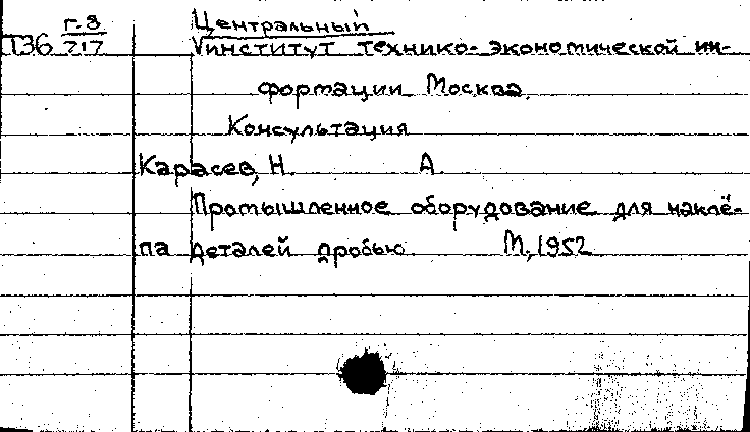 Г.8
Т36 717
Центральный
институт технико-экономической ин-
формации Москва.
Консультация
Карасев, Н. А
Промышленное оборудование для наклё-
па деталей дробью М., 1952